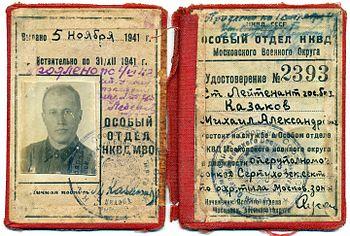 Выдано 5 Ноября 1941 г.
Действительно по 31/XII 1941 г.
ОСОБЫЙ
ОТДЕЛ
НКВД МВО
Личная подпись
НКВД СССР
ОСОБЫЙ ОТДЕЛ НКВД
Московского Военного Округа
Удостоверение № 2393
Ст. Лейтенант гос. без.
Казаков
Михаил Александрович
состоит на службе в Особом отделе
НКВД Московского военного округа
в должности оперуполномо-
по охране Москов. зоны
Начальник Особого отдела
Московского Военного Округа